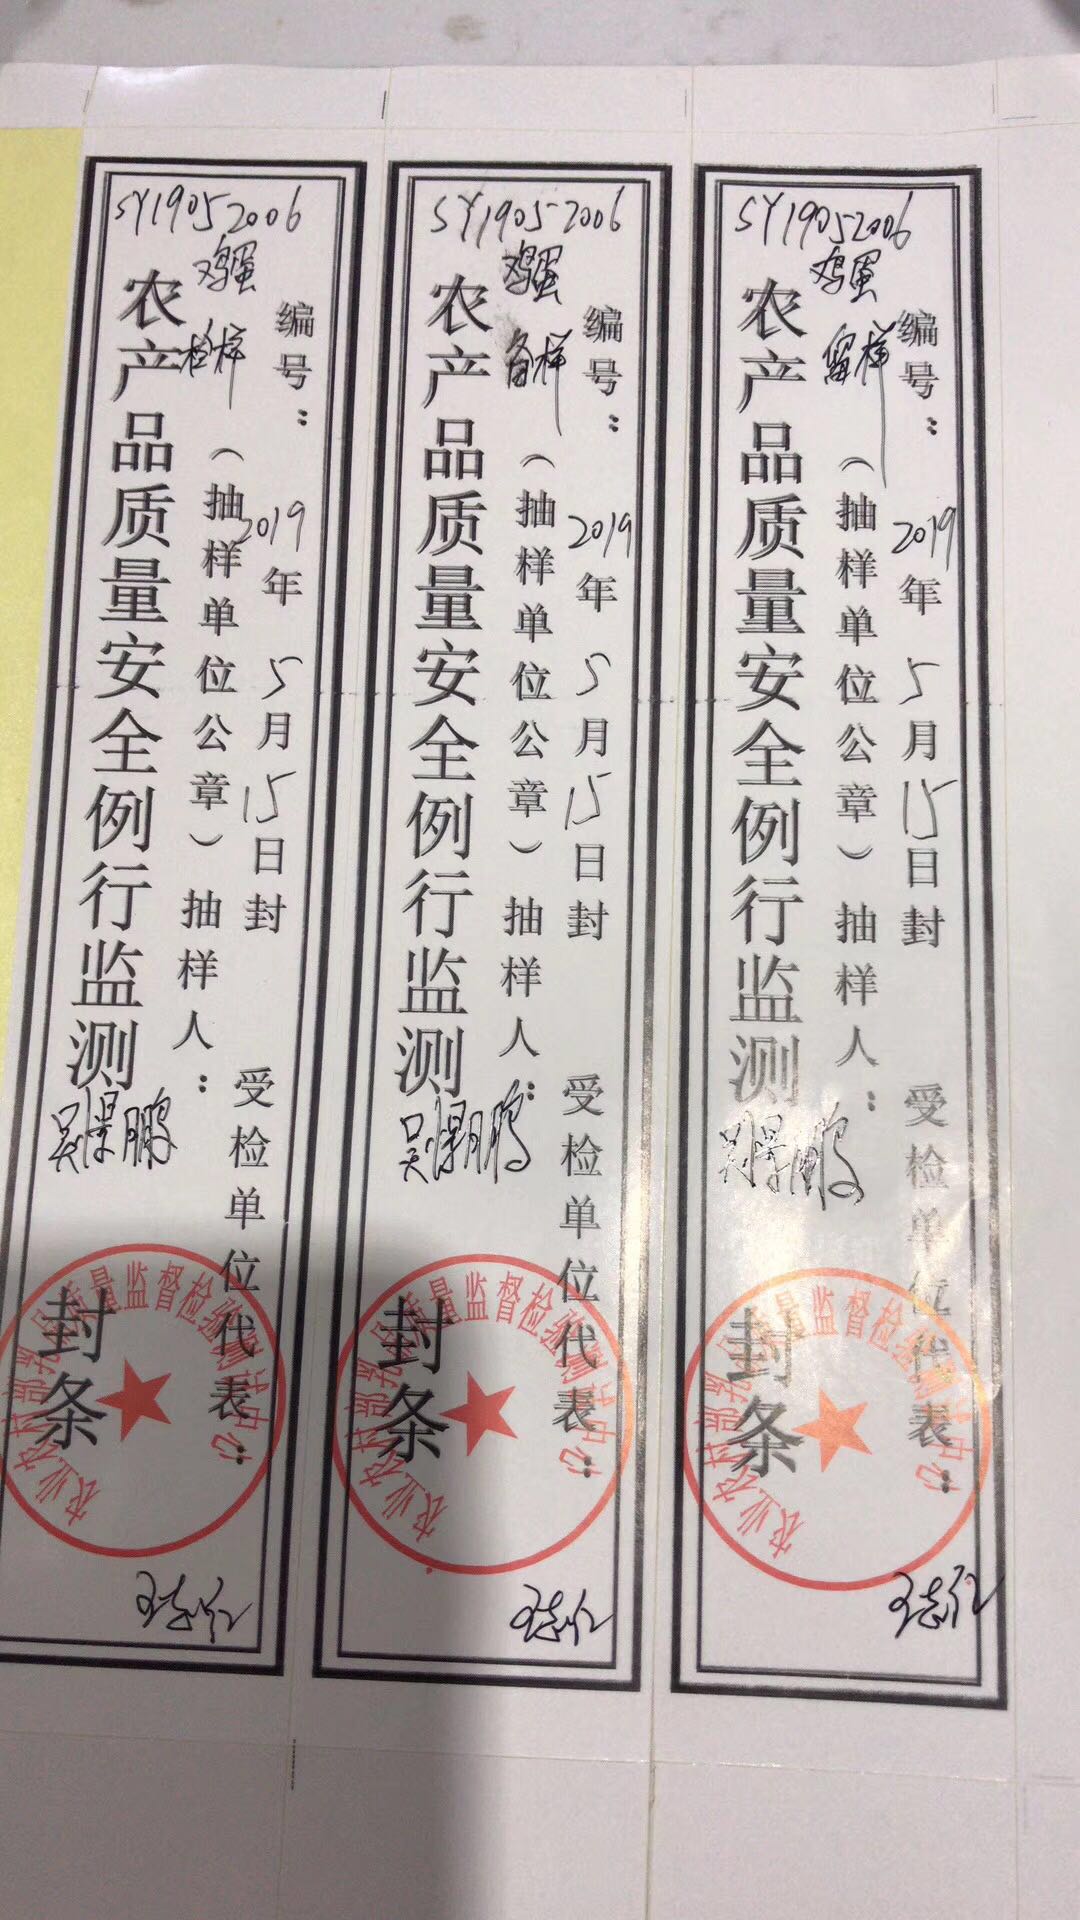 SY1905-2006
鸡蛋
检样
编号：
农产品质量安全例行监测
封条
（抽样单位公章）
抽样人：
2019年5月15日封
受检单位代表：
农业农村部
质量监督检验测试中心
SY1905-2006
鸡蛋
备样
编号：
农产品质量安全例行监测
封条
（抽样单位公章）
抽样人：
2019年5月15日封
受检单位代表：
农业农村部
质量监督检验测试中心
SY1905-2006
鸡蛋
留样
编号：
农产品质量安全例行监测
封条
（抽样单位公章）
抽样人：
2019年5月15日封
受检单位代表：
农业农村部
质量监督检验测试中心